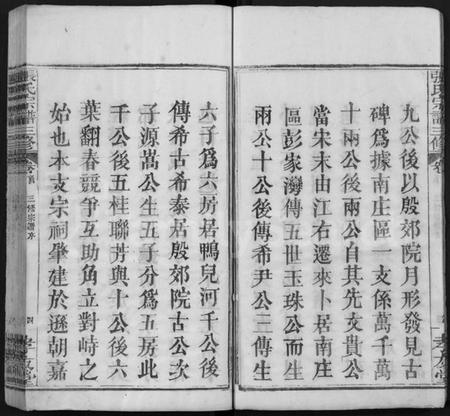 九公後以殷郊院月形發見古
碑爲據南庄區一支係萬千萬
十公後兩公自其先文貴公
當宋末由江右遷來卜居南庄
區彭家灣傳五世玉珠公而生
兩公十公後傳希尹公三傳生
六子爲六房居鴨兒河千公後
傳希古希泰居殷郊院古公次
子源嵩公生五子分爲五房此
千公後五桂聯芳與十公後六
葉翻春競爭互助角立對峙之
始也本支宗祠肇建於遜朝嘉
張氏宗譜三修
卷首
三修宗譜序
四
孝友堂